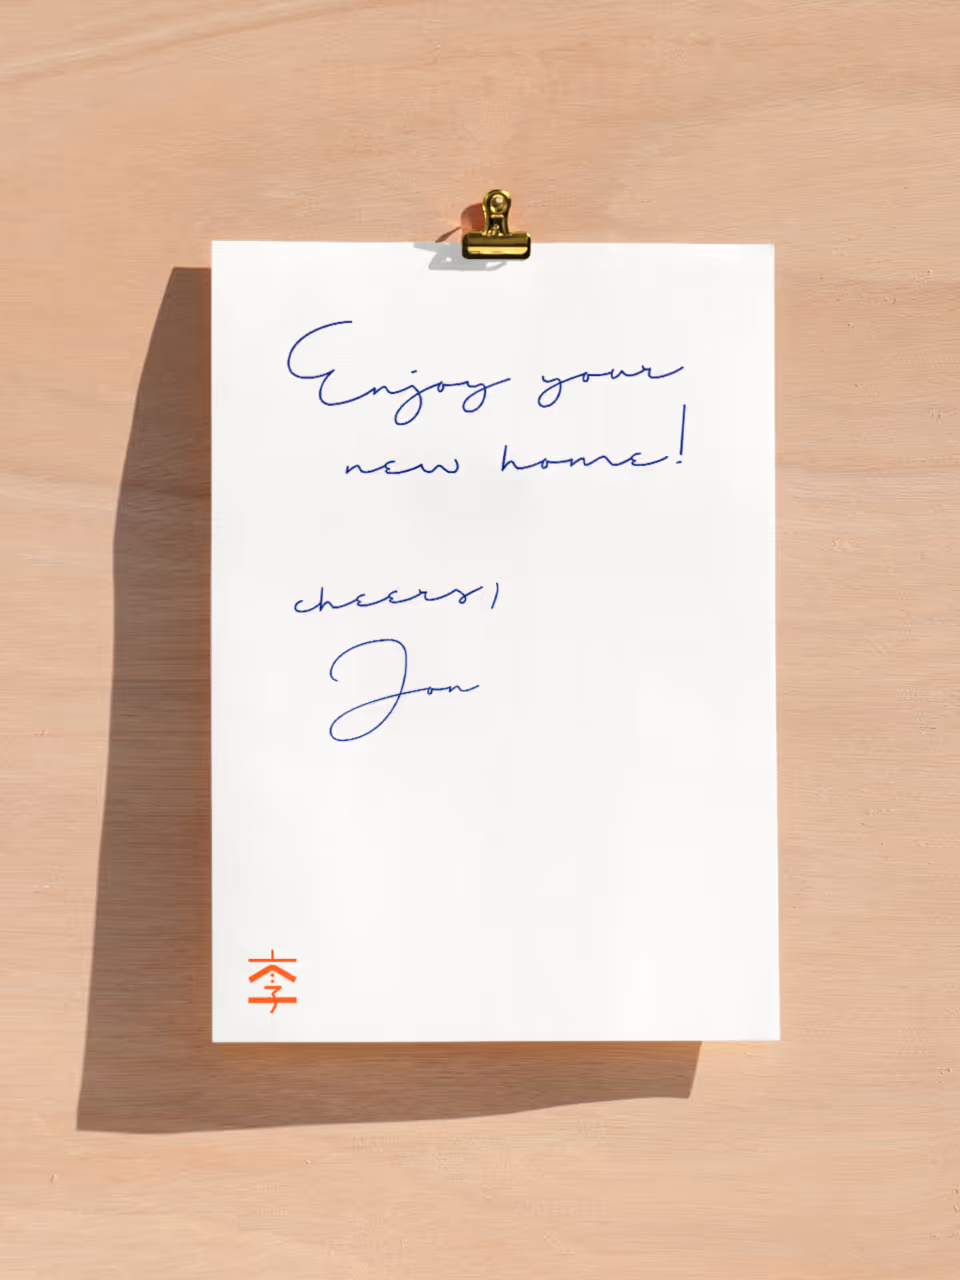 Enjoy your
new home!
cheers,
Jon
李